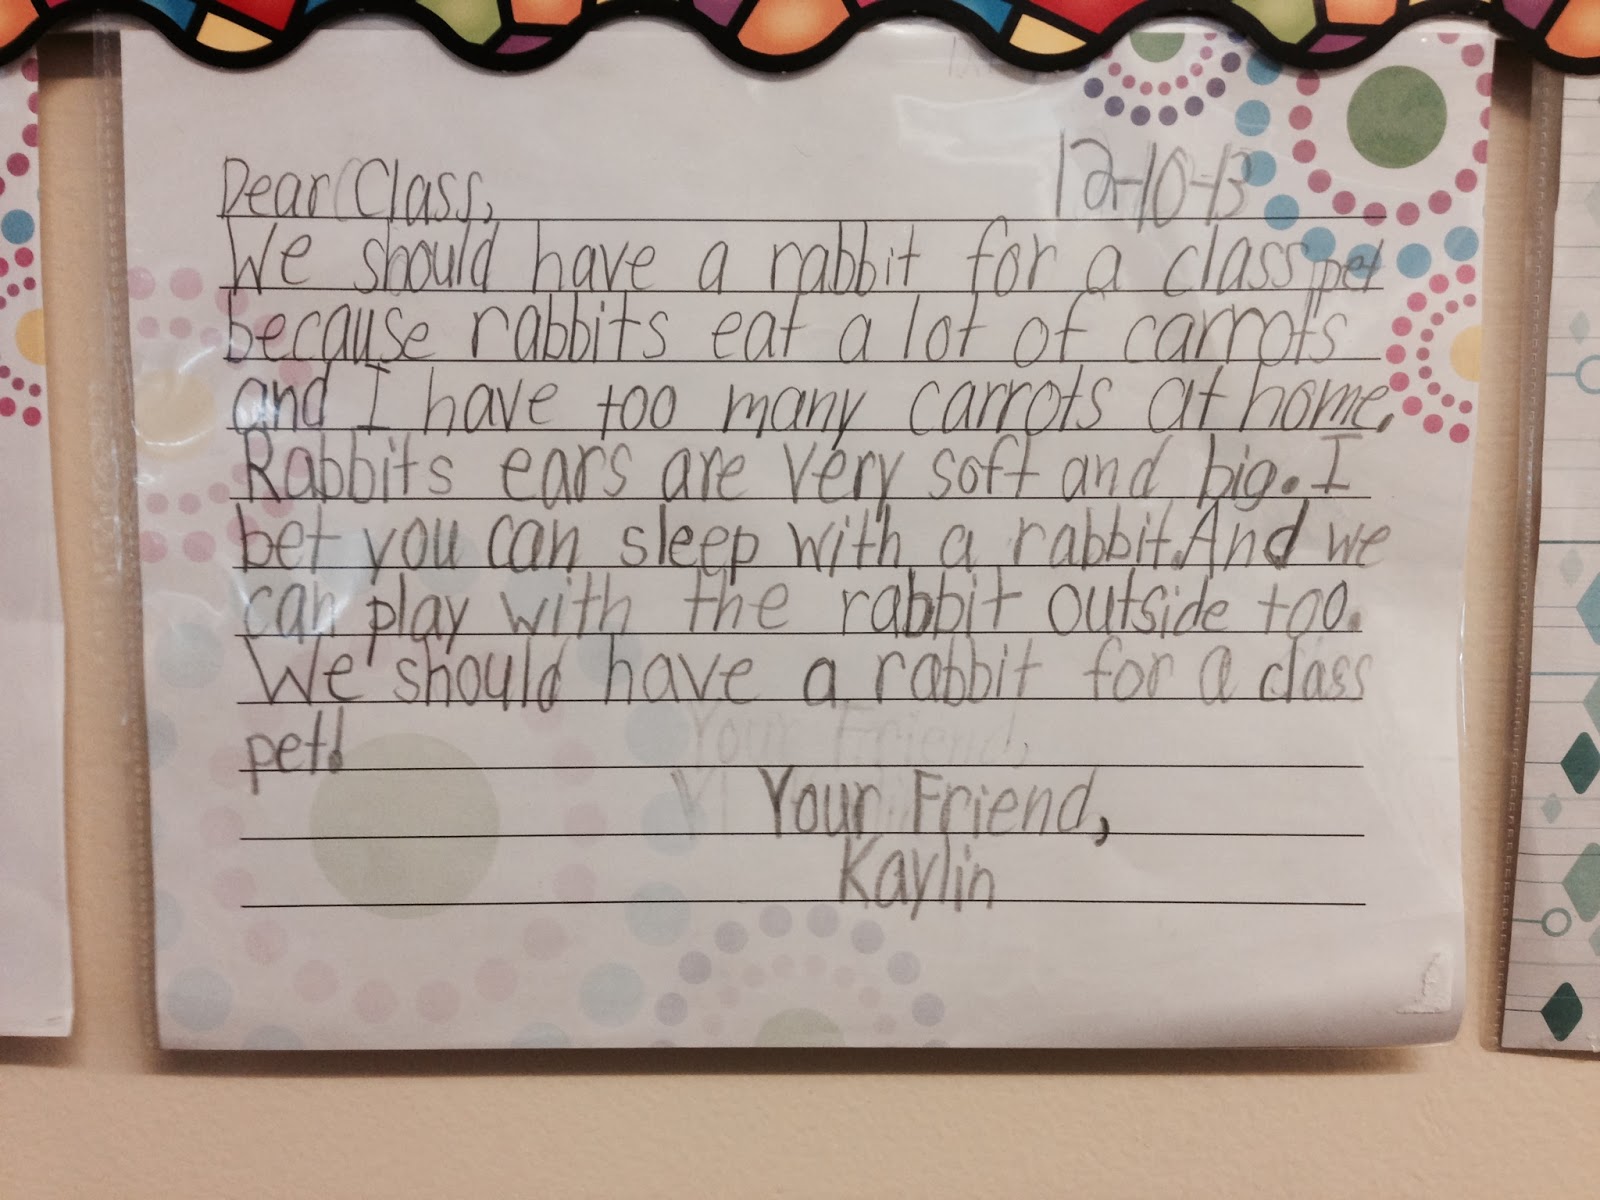 Dear Class, 12-10-13
We should have a rabbit for a class pet
because rabbits eat a lot of carrots
and I have too many carrots at home.
Rabbits ears are very soft and big. I
bet you can sleep with a rabbit. And we
can play with the rabbit outside too.
We should have a rabbit for a class
pet!
Your Friend,
Your Friend,
Kaylin